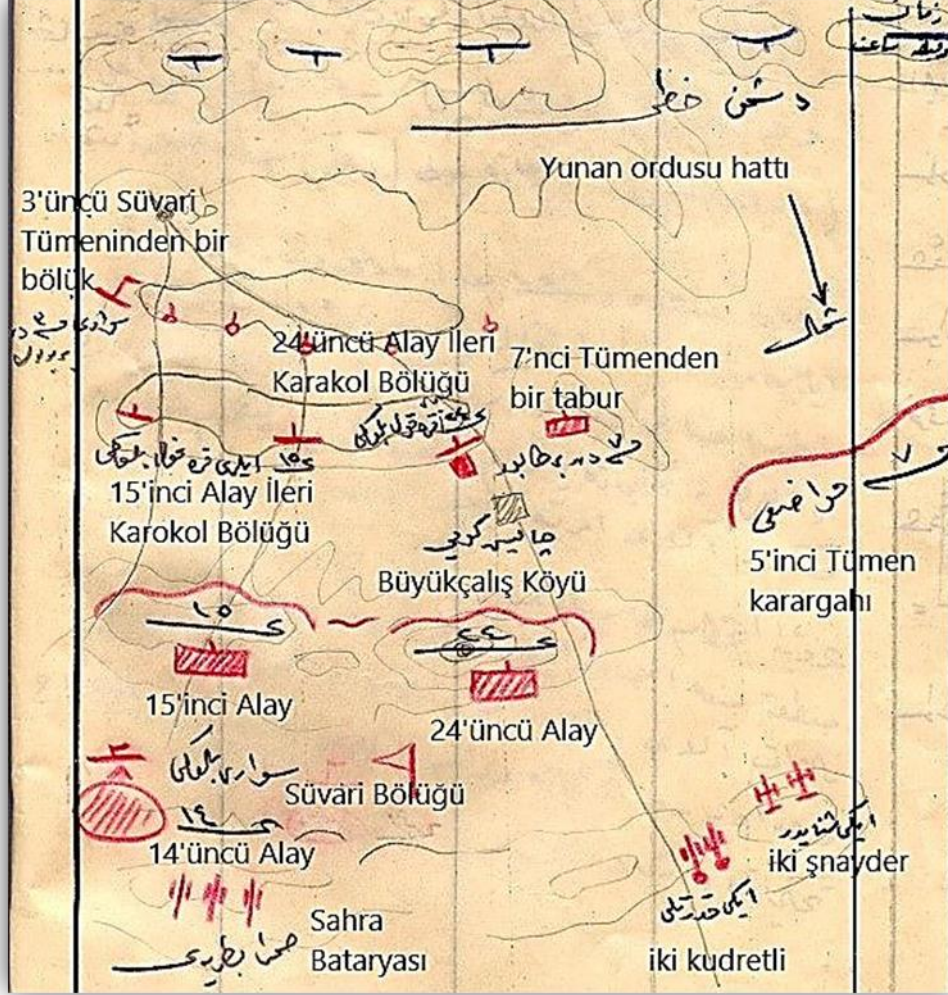 دشمن خطی
Yunan ordusu hattı
3'üncü Süvari
Tümeninden bir
bölük
شمال
24'üncü Alay İleri
Karakol Bölüğü
7'nci Tümenden
bir tabur
15'inci Alay İleri
Karokol Bölüğü
چالیش کویی
Büyükçalış Köyü
5'inci Tümen
karargahı
١٥
٢٤
15'inci Alay
24'üncü Alay
سواری بلوکی
Süvari Bölüğü
١٤
14'üncü Alay
ایکی شنایدر
iki şnayder
ایکی قدرتلی
iki kudretli
Sahra
Bataryası